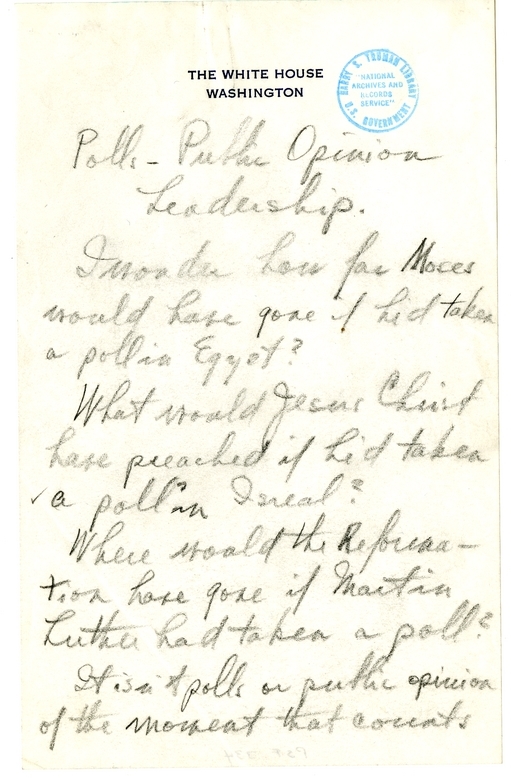 THE WHITE HOUSE
WASHINGTON
HARRY S. TRUMAN LIBRARY
"NATIONAL
ARCHIVES AND
RECORDS
SERVICE"
U.S. GOVERNMENT
Polls - Public Opinion
Leadership.
I wonder how far Moses
would have gone if he'd taken
a poll in Egypt?
What would Jesus Christ
have preached if he'd taken
✓ a poll in Isreal?
Where would the Reforma-
tion have gone if Martin
Luther had taken a poll?
It isn't polls or public opinion
of the moment that counts